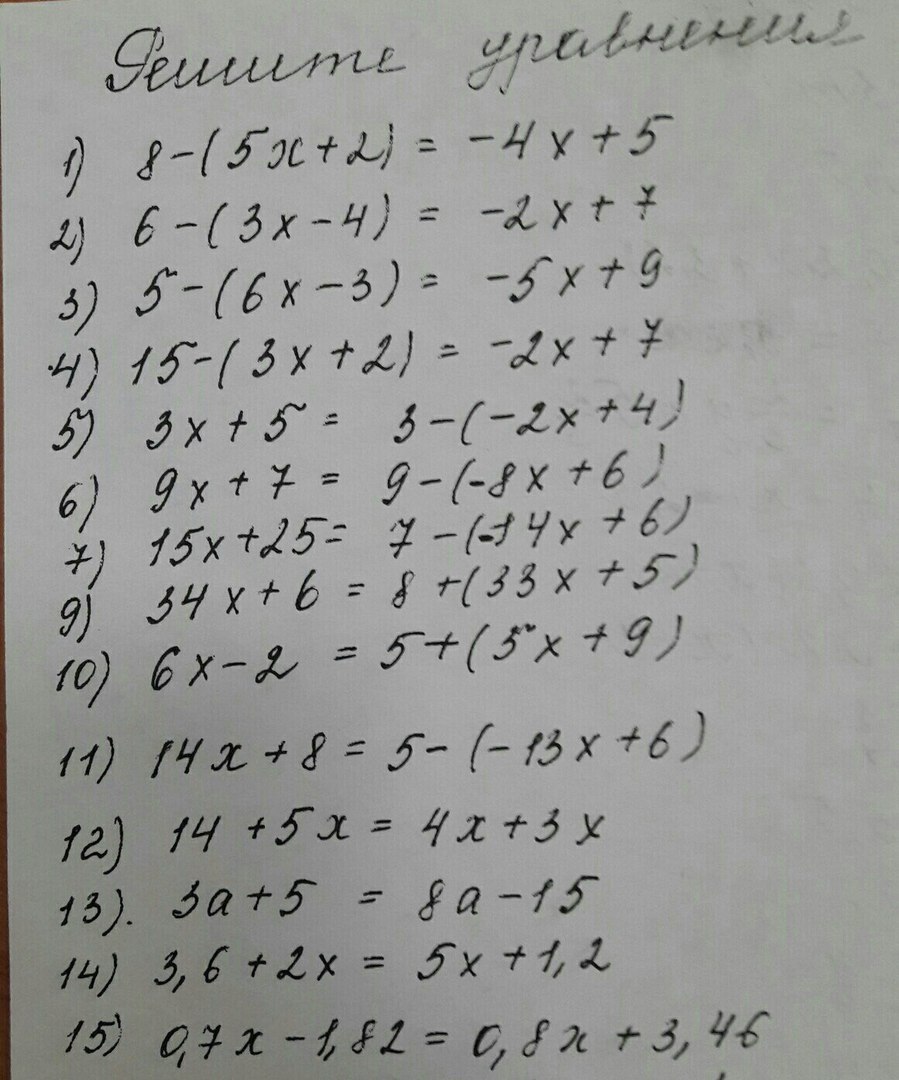 Решите уравнения
1) 8-(5x+2) = -4x+5
2) 6-(3x-4) = -2x+7
3) 5-(6x-3) = -5x+9
4) 15-(3x+2) = -2x+7
5) 3x+5 = 3-(-2x+4)
6) 9x+7 = 9-(-8x+6)
7) 15x+25= 7-(-14x+6)
9) 34x+6 = 8+(33x+5)
10) 6x-2 = 5+(5x+9)
11) 14x+8 = 5-(-13x+6)
12) 14+5x = 4x+3x
13). 3a+5 = 8a-15
14) 3,6+2x = 5x+1,2
15) 0,7x-1,82 = 0,8x+3,46